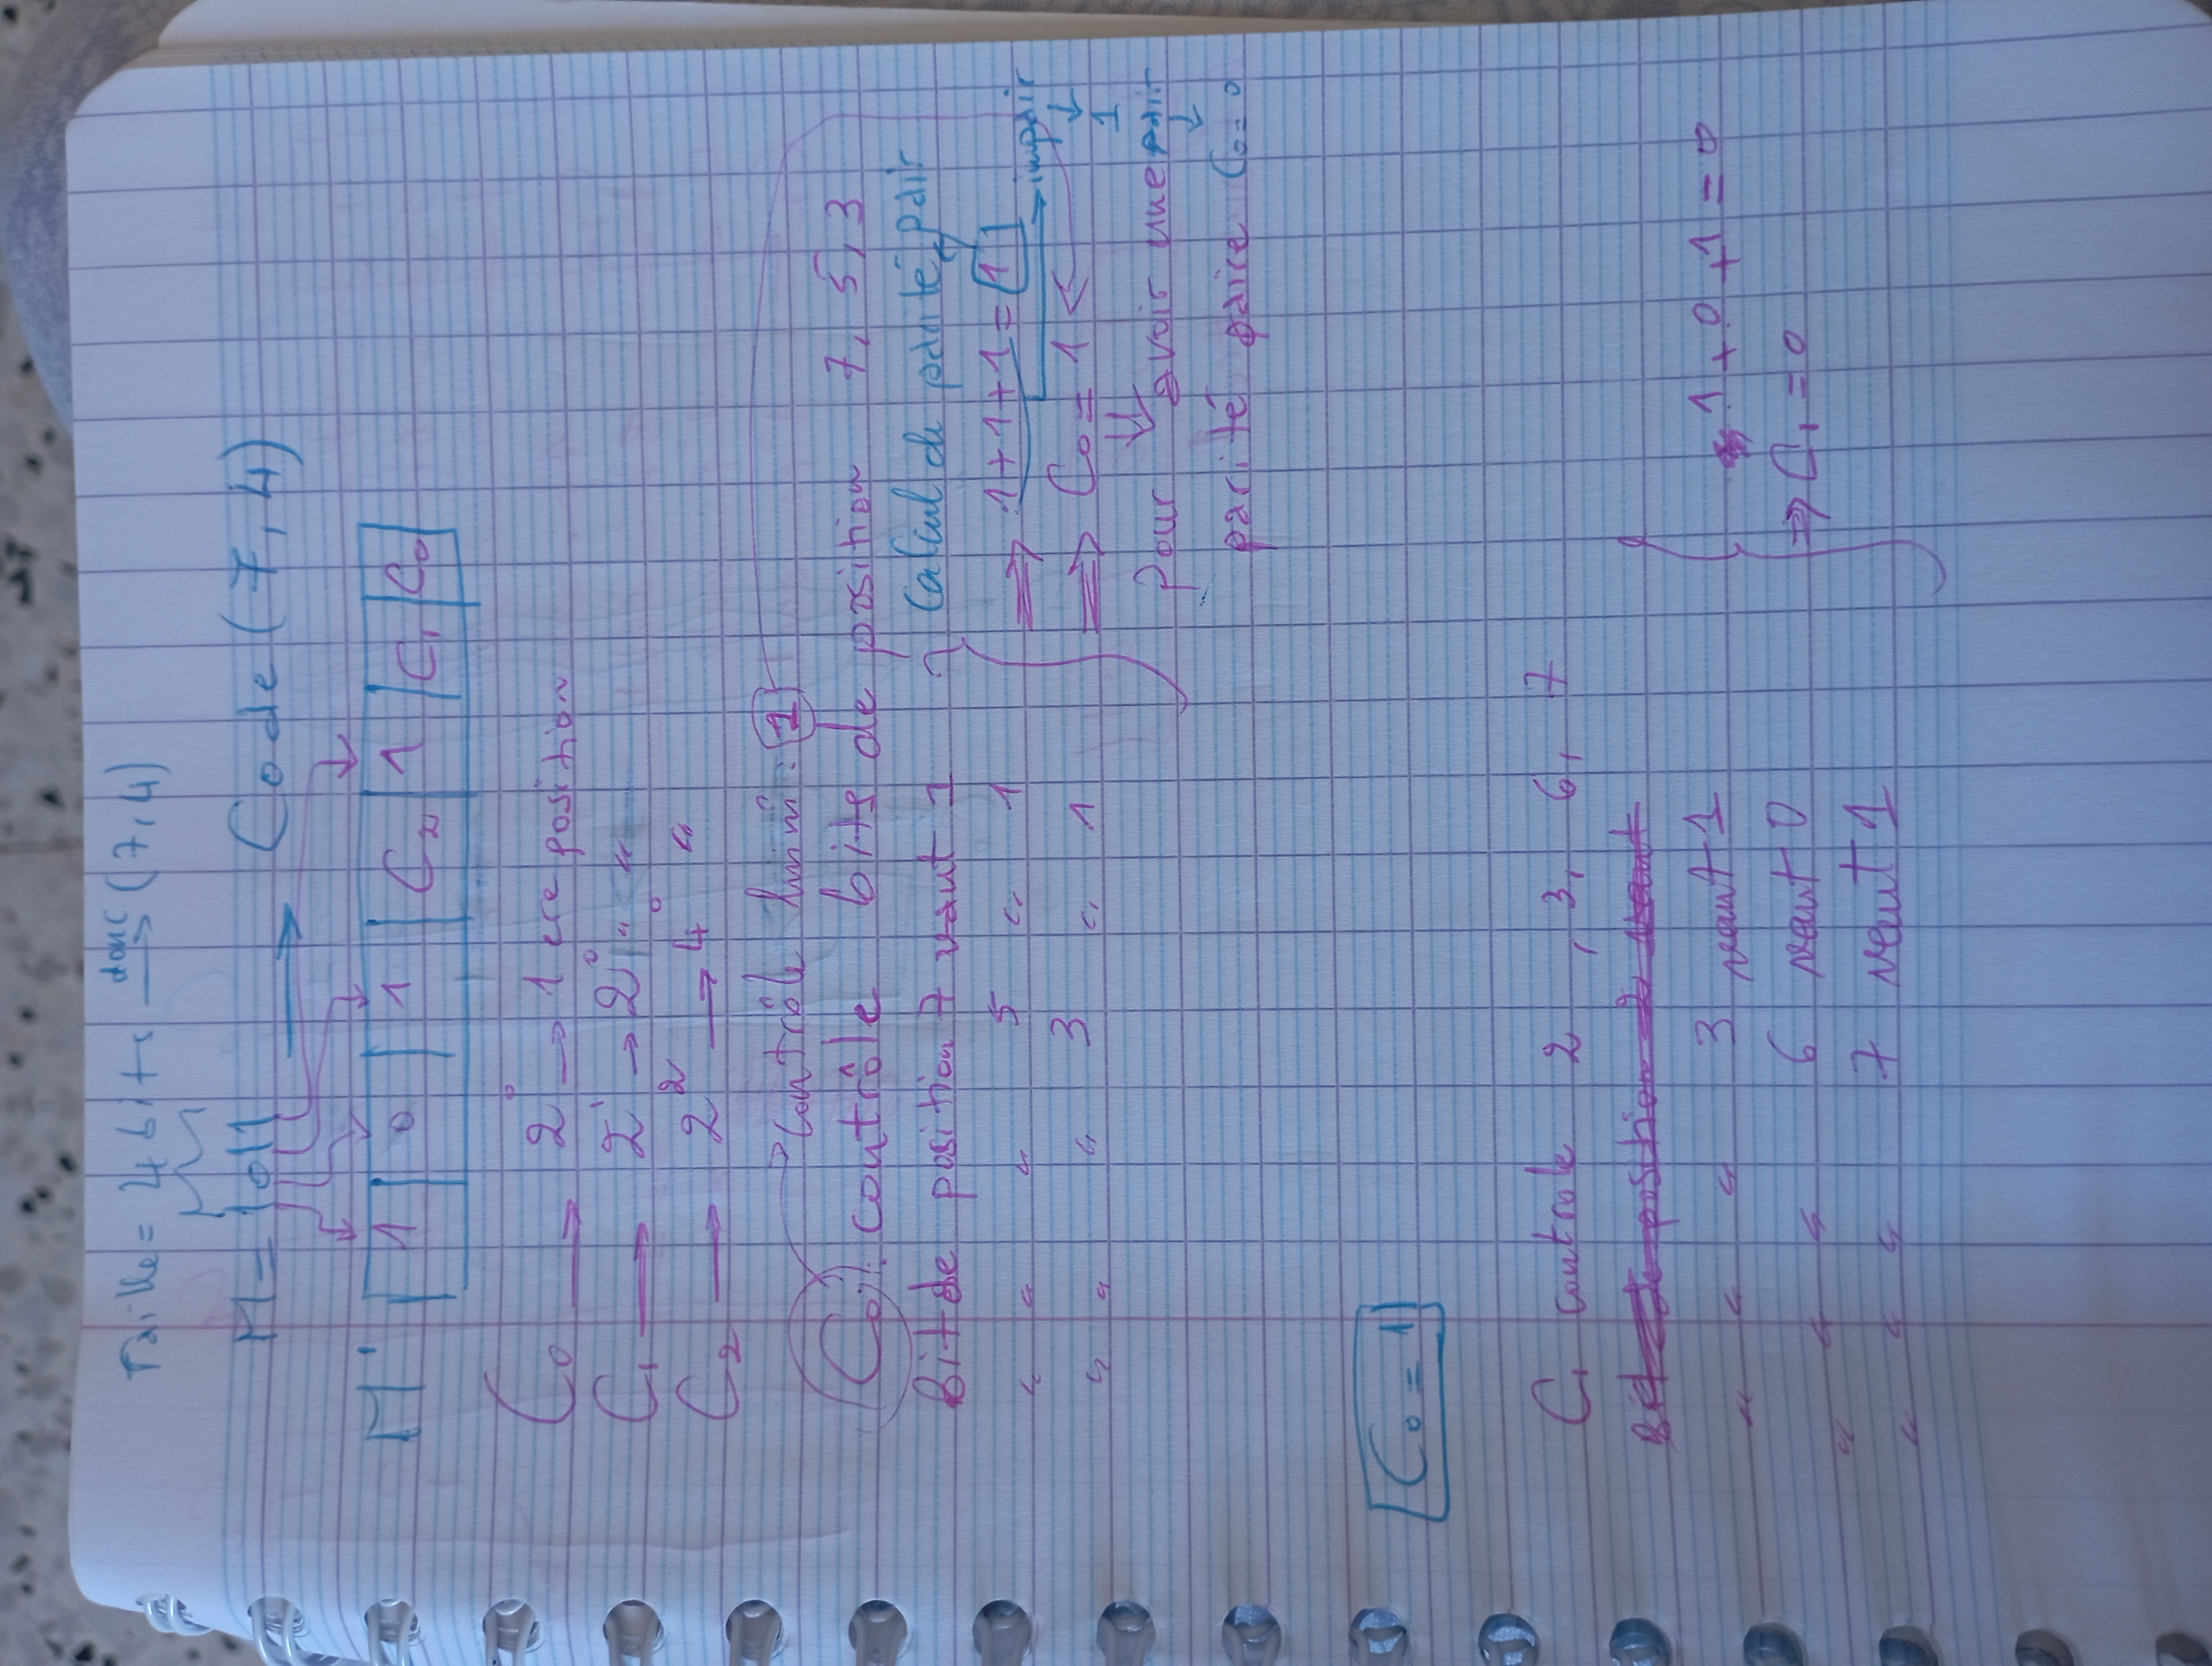 Taille = 4 bits donc → (7, 4)
M = 1011 → Code (7, 4)
M' 1 0 1 C₂ 1 C₁ C₀
C₀ → 2⁰ → 1 ere position
C₁ → 2¹ → 2° " "
C₂ → 2² → 4° "
contrôle : 1
C₀ : contrôle bits de position 7, 5, 3
Bit de position 7 vaut 1
" " " 5 " 1
" " " 3 " 1
Calcul de parité pair
⇒ 1+1+1 = 1
impair
↓
1
⇒ C₀ = 1 ←
pair
↓
C₀ = 0
⇓
Pour avoir une
parité paire
C₀ = 1
C₁ controle 2, 3, 6, 7
Bit de position 2 vaut
" " " 3 vaut 1
" " " 6 vaut 0
" " " 7 vaut 1
1 + 0 + 1 = 0
⇒ C₁ = 0